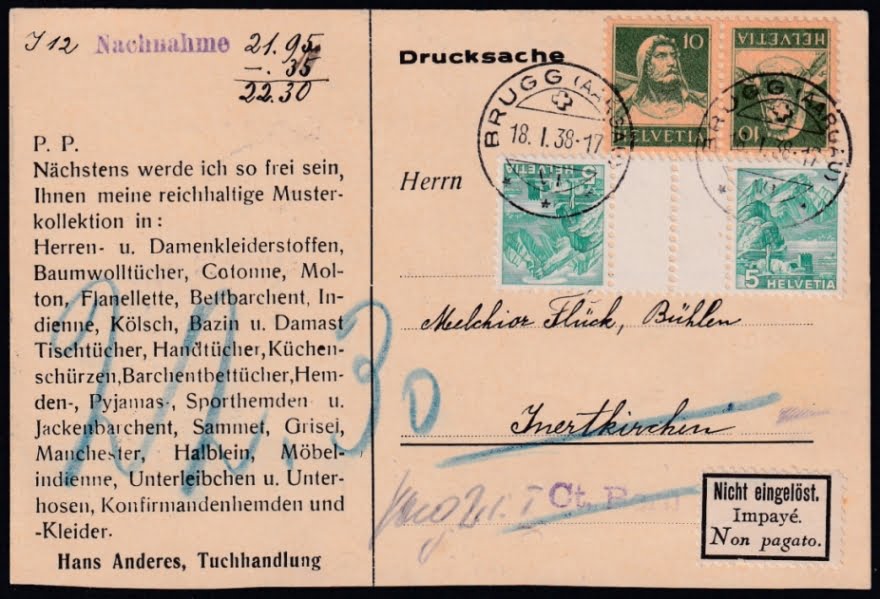 J 12 Nachnahme 21.95
-. 35
22.30
P. P.
Nächstens werde ich so frei sein,
Ihnen meine reichhaltige Muster-
kollektion in :
Herren- u. Damenkleiderstoffen,
Baumwolltücher, Cotonne, Mol-
ton, Flanellette, Bettbarchent, In-
dienne, Kölsch, Bazin u. Damast
Tischtücher, Handtücher,Küchen-
schürzen,Barchentbettücher,Hem-
den-, Pyjamas-, Sporthemden u.
Jackenbarchent, Sammet, Grisei,
Manchester, Halblein, Möbel-
indienne, Unterleibchen u. Unter-
hosen, Konfirmandenhemden und
-Kleider.
Hans Anderes, Tuchhandlung
22.30
Drucksache
10
HELVETIA
HELVETIA
10
BRUGG (AARGAU)
18. I. 38-17
BRUGG (AARGAU)
18. I. 38-17
5
HELVETIA
5
HELVETIA
Herrn
Melchior Flück, Bühlen
Inertkirchen
Ct. Bern
Nicht eingelöst.
Impayé.
Non pagato.